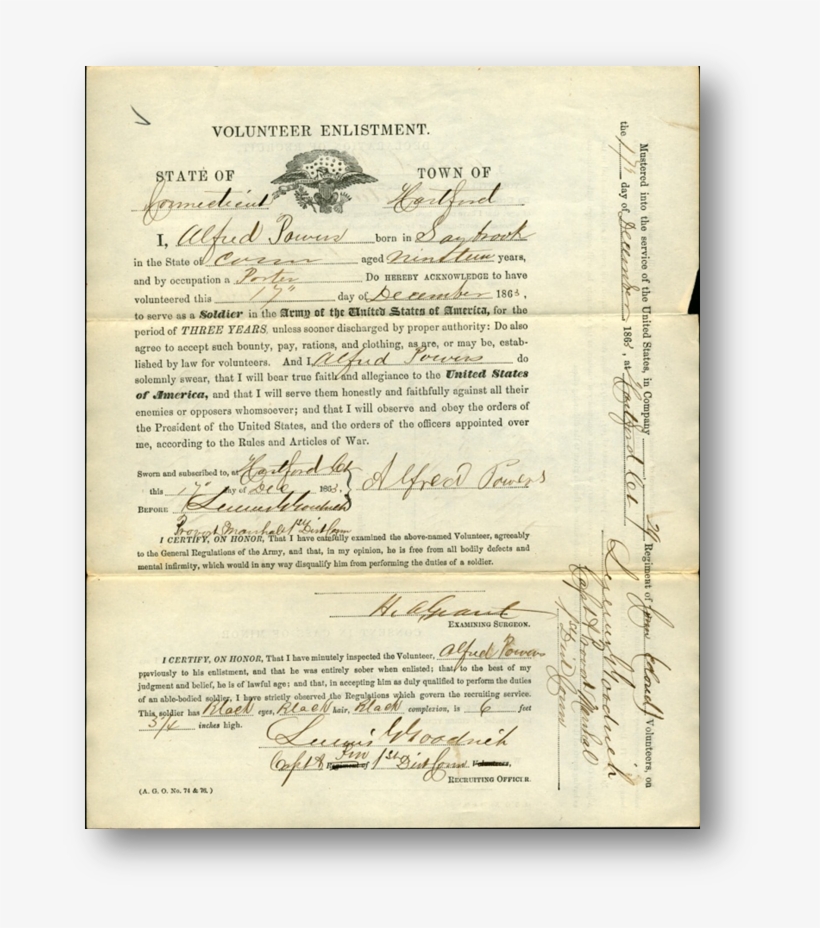 VOLUNTEER ENLISTMENT.
STATE OF TOWN OF
Connecticut Hartford
I, Alfred Powers born in Saybrook
in the State of Conn aged nineteen years,
and by occupation a Porter Do HEREBY ACKNOWLEDGE to have
volunteered this 17" day of December 1863,
to serve as a Soldier in the Army of the United States of America, for the
period of THREE YEARS, unless sooner discharged by proper authority: Do also
agree to accept such bounty, pay, rations, and clothing, as are, or may be, estab-
lished by law for volunteers. And I, Alfred Powers do
solemnly swear, that I will bear true faith and allegiance to the United States
of America, and that I will serve them honestly and faithfully against all their
enemies or opposers whomsoever; and that I will observe and obey the orders of
the President of the United States, and the orders of the officers appointed over
me, according to the Rules and Articles of War.
Sworn and subscribed to, at Hartford Ct
this 17" day of Dec 1863, Alfred Powers
BEFORE Lewis Goodrich
Provost Marshal 1st Dist Conn
I CERTIFY, ON HONOR, That I have carefully examined the above-named Volunteer, agreeably
to the General Regulations of the Army, and that, in my opinion, he is free from all bodily defects and
mental infirmity, which would in any way disqualify him from performing the duties of a soldier.
H. A. Grant
EXAMINING SURGEON.
I CERTIFY, ON HONOR, That I have minutely inspected the Volunteer, Alfred Powers
previously to his enlistment, and that he was entirely sober when enlisted; that to the best of my
judgment and belief, he is of lawful age; and that, in accepting him as duly qualified to perform the duties
of an able-bodied soldier, I have strictly observed the Regulations which govern the recruiting service.
This soldier has Black eyes, Black hair, Black complexion, is 6 feet
3/4 inches high.
Goodrich
Capt & Pro 1st Dist Conn. Volunteers,
RECRUITING OFFICER.
(A. G. O. No. 74 & 76.)
Mustered into the service of the United States, in Company 29 Regiment of Volunteers, on
the 17" day of December 1863, at Hartford Ct
Goodrich
Capt & Provost Marshal
1st Dist Conn